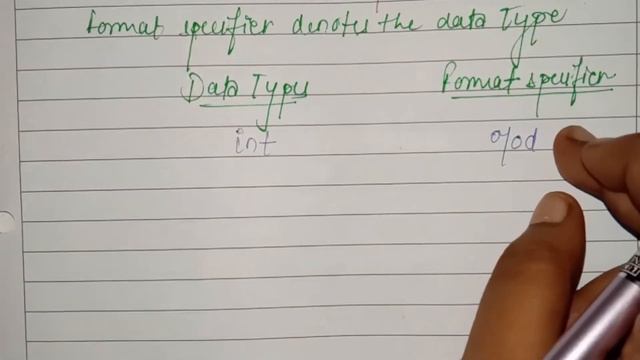 Format specifier denotes the data Type
Data Type Format specifier
int %d